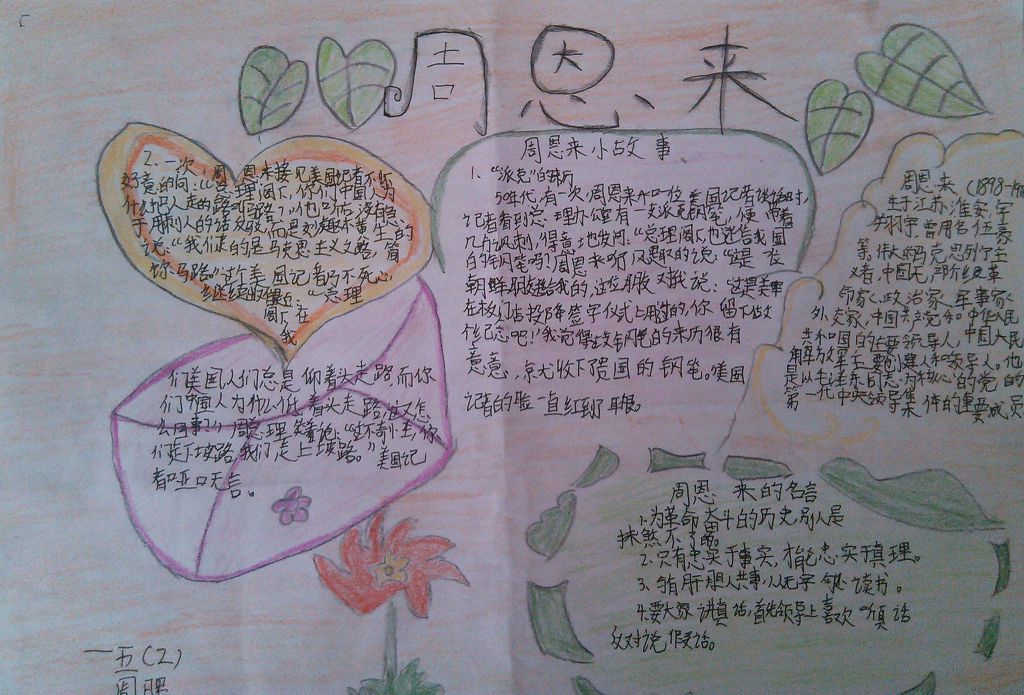 周恩来
周恩来小故事
1、“派克”的来历
50年代,有一次周恩来和一位美国记者谈话时,
记者看到总理办公室有一支派克钢笔,便带着
几分讽刺,得意地发问:“总理阁下,也迷信我国
的钢笔吗?周恩来听风趣的说:“这是一位
朝鲜朋友送给我的,这位朋友对我说:“这是美军
在板门店投降签字仪式上用过的,你留下做
个纪念吧!”我觉得这支钢笔的来历很有
意意,就收下贵国的钢笔。”美国
记者的脸一直红到耳根。
2、一次,周恩来接见美国记者不怀
好意的问:“总理阁下,你们中国人为
什么把人走的路叫马路?”他听后没有急
于用刺人的话反驳,而是妙趣不
说:“我们走的是马克思主义之路,简
称马路”这个美国记者仍不死心,
继续的:“总理
阁下,在
我
们美国人们总是仰着头走路而你
们中国人为什么低着头走路,这又怎
么回事?”周总理笑着说:“这不奇怪,你
们走下坡路,我们走上坡路。”美国记
者哑口无言。
周恩来(1898-
生于江苏淮安,字
翔宇,曾用名伍豪
等,伟大的马克思列宁主
义者,中国无产阶级革
命家、政治家、军事家
外交家,中国共产党和中华人民
共和国的主要领导人,中国人民
解放军主要创建人和领导人。他
是以毛泽东同志为核心的党的
第一代中央领导集体的重要成员
周恩来的名言
1.为革命奋斗的历史,别人是
抹煞不了的。
2.只有忠实于事实,才能忠实于真理。
3、与有肝胆人共事,从无字句处读书。
4.要大家讲真话,首先领导上喜欢听真话
反对说假话。
一五(2)